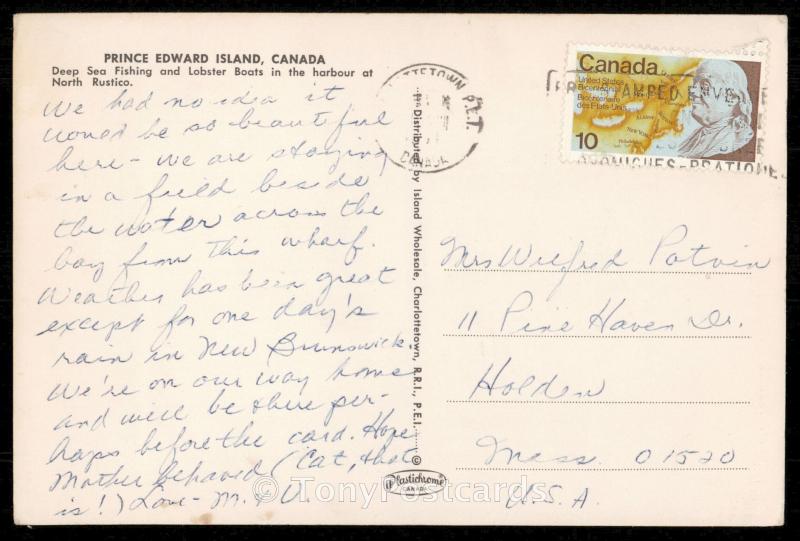 PRINCE EDWARD ISLAND, CANADA
Deep Sea Fishing and Lobster Boats in the harbour at
North Rustico.
We had no idea it
would be so beautiful
here - we are staying
in a field beside
the water across the
bay from this wharf.
Weather has been great
except for one day's
rain in New Brunswick.
We're on our way home
and will be there per-
haps before the card. Hope
Mother behaved (Cat, that
is!) Love - M. & V.
Distributed by Island Wholesale, Charlottetown, R.R.1., P.E.I. ©
Plastichrome
CANADA
P.E.I.
CANADA
Canada
United States
Bicentennial
Bicentenaire
des États-Unis
10
Mrs Wilfred Potvin
11 Pine Haven Dr.
Holden
Mass. 01520
U.S.A.
© TonyPostcards